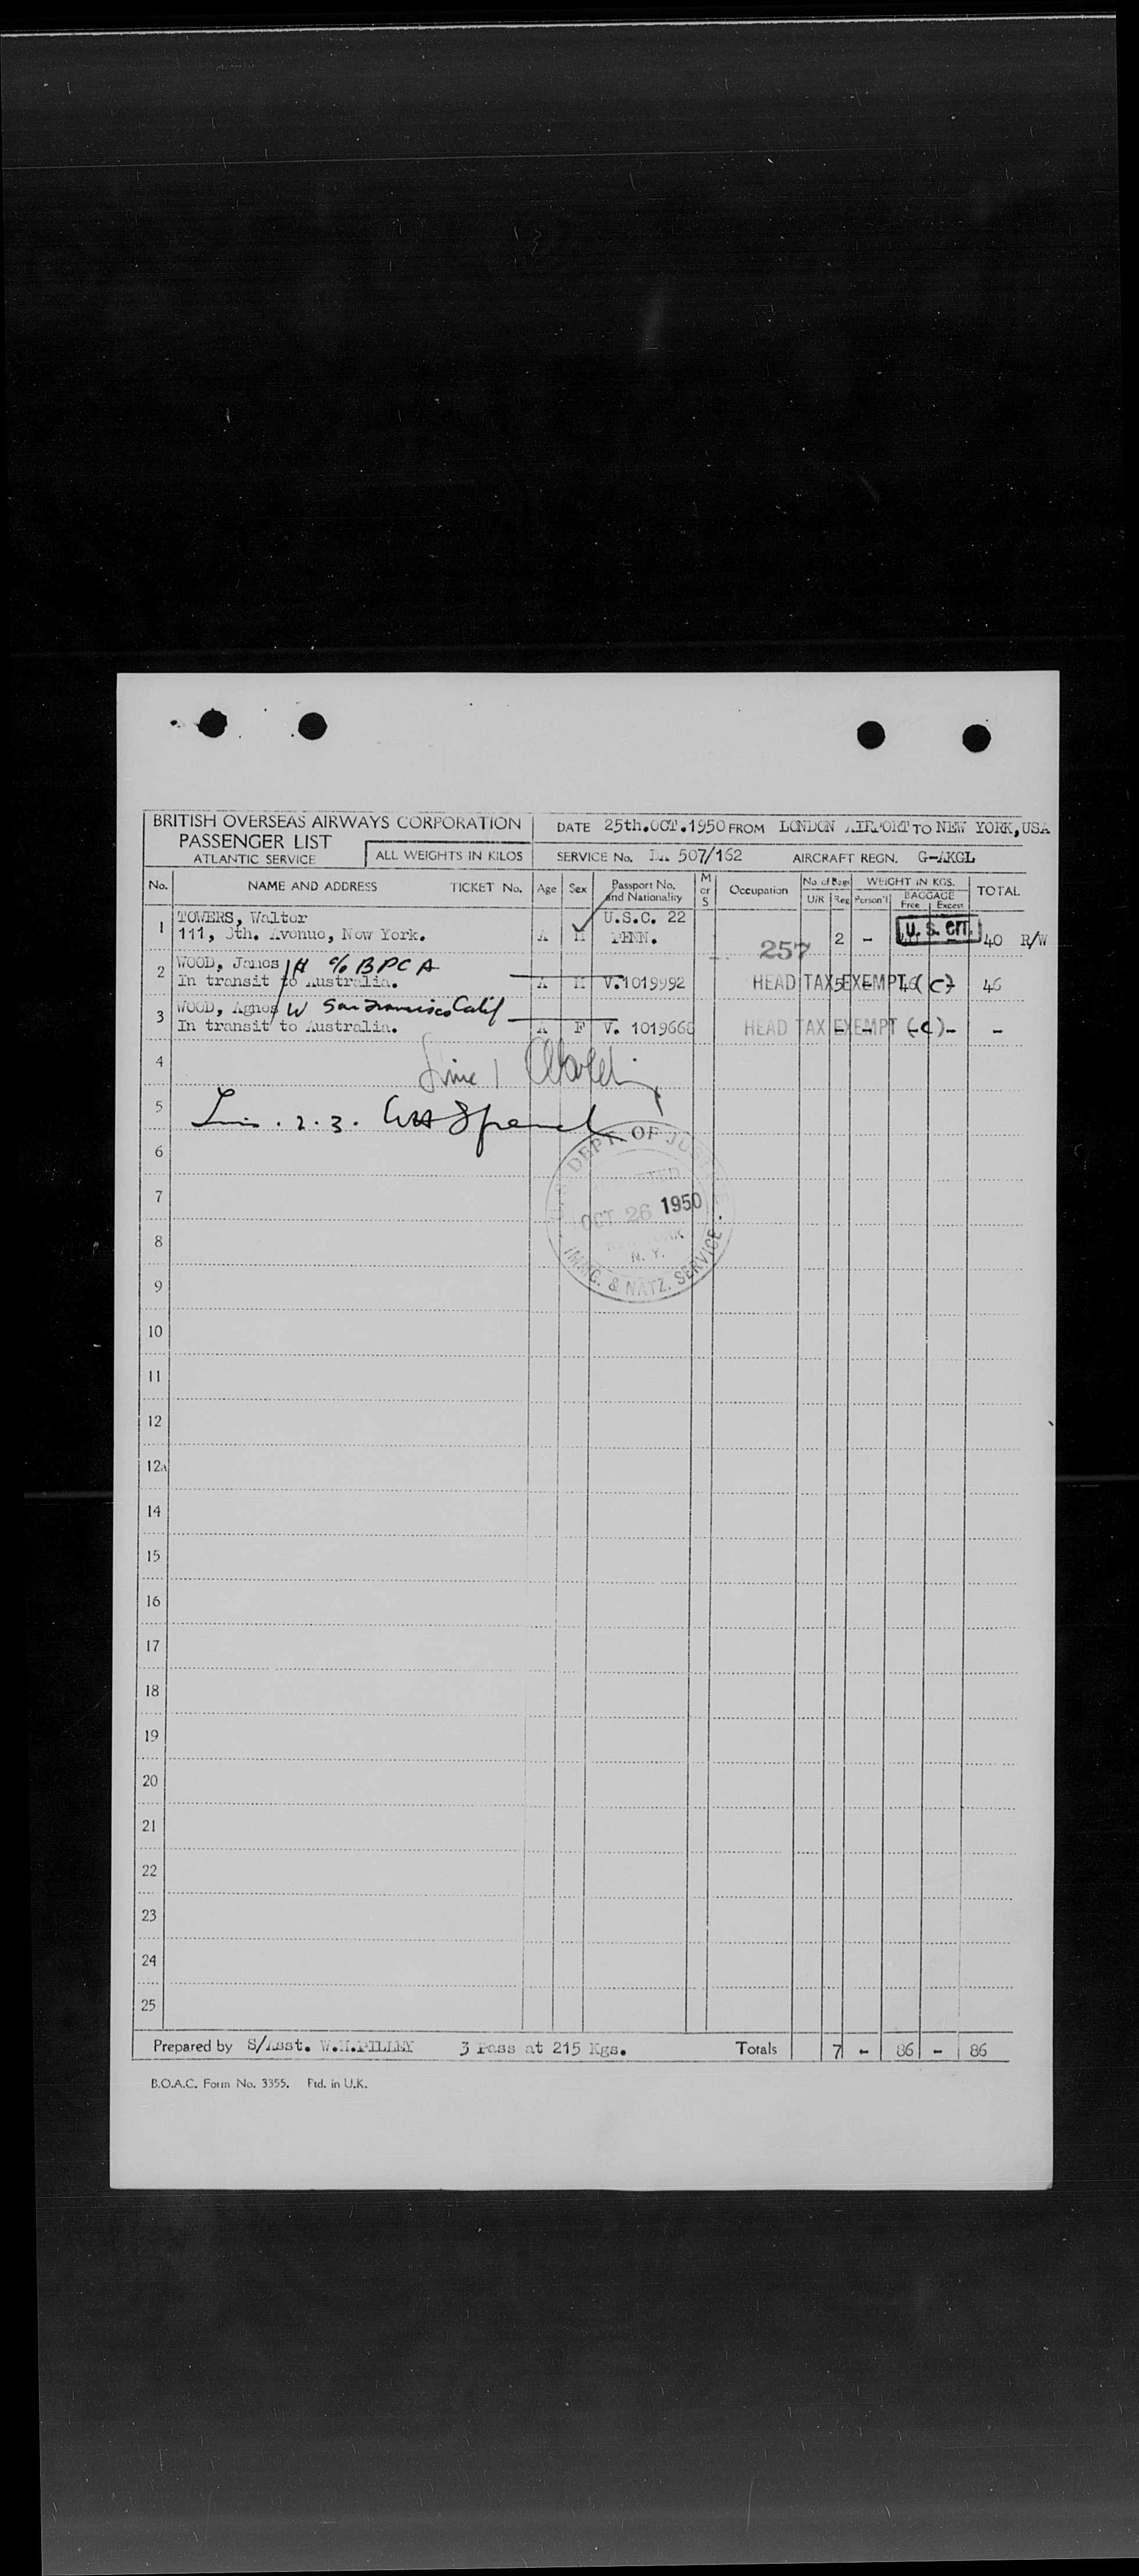 BRITISH OVERSEAS AIRWAYS CORPORATION
PASSENGER LIST
ATLANTIC SERVICE
ALL WEIGHTS IN KILOS
DATE 25th.OCT.1950 FROM LONDON AIRPORT TO NEW YORK, USA
SERVICE No. 507/162 AIRCRAFT REGN. G-AKGL
No. NAME AND ADDRESS TICKET No. Age Sex Passport No. and Nationality M or S Occupation No. of Bags U/R Reg WEIGHT IN KGS. Person'l BAGGAGE Free Excess TOTAL
1 TOWERS, Walter U.S.C. 22
111, 5th. Avenue, New York. A M PENN. 257 2 - U. S. cit. 40 R/W
2 WOOD, James H c/o BPCA
In transit to Australia. A M V.1019992 HEAD TAX EXEMPT (C) 5 - 46 - 46
3 WOOD, Agnes W San Francisco Calif
In transit to Australia. A F V. 101966 HEAD TAX EXEMPT (C) - - - - -
4 Line 1
5 2.3.
6
DEPT. OF JUSTICE
7
OCT 26 1950
8
N. Y.
IMMIG. & NATZ. SERVICE
9
10
11
12
12A
14
15
16
17
18
19
20
21
22
23
24
25
Prepared by S/Asst. 3 Pass at 215 Kgs. Totals 7 - 86 - 86
B.O.A.C. Form No. 3355. Ptd. in U.K.